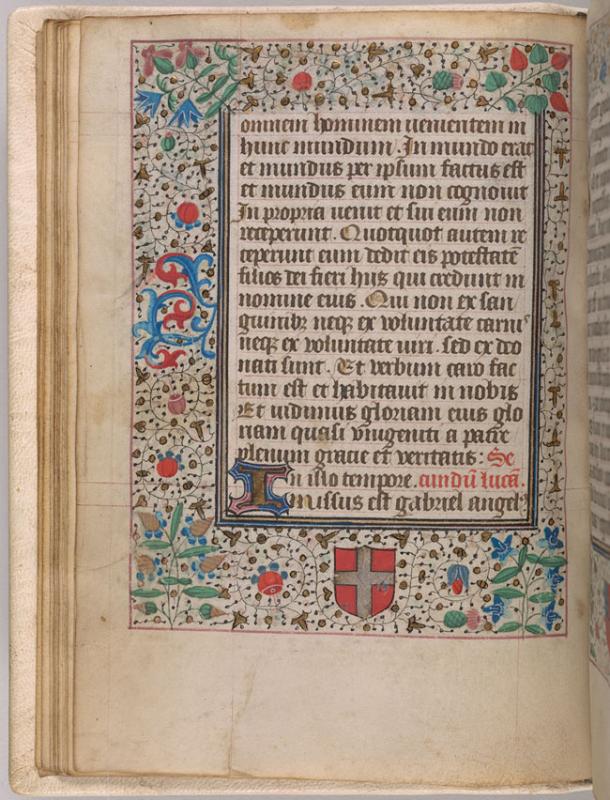 omnem hominem uenientem in
hunc mundum. In mundo erat
et mundus per ipsum factus est
et mundus eum non cognouit
In propria uenit et sui eum non
receperunt. Quotquot autem re
ceperunt eum dedit eis potestatē
filios dei fieri hiis qui credunt in
nomine eius. Qui non ex san
guinibꝫ neqꝫ ex voluntate carnis
neqꝫ ex voluntate uiri. sed ex deo
nati sunt. Et verbum caro fac
tum est et habitauit in nobis
Et uidimus gloriam eius glo
riam quasi vnigeniti a patre
plenum gracie et veritatis: Se
In illo tempore. cundū lucā.
missus est gabriel angelꝰ